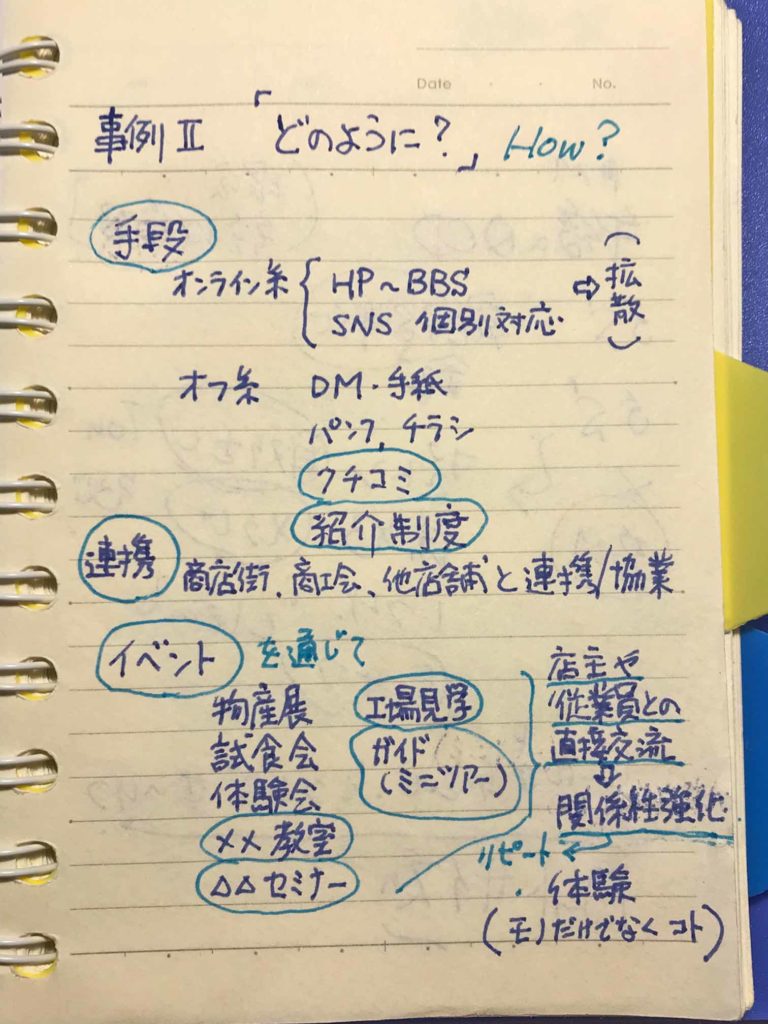 Date ・ ・ No.
事例Ⅱ 「どのように?」 How?
手段
オンライン系 { HP～BBS ⇨ (拡散)
SNS 個別対応
オフ系 DM・手紙
パンフ, チラシ
クチコミ
紹介制度
連携 商店街、商工会、他店舗と連携/協業
イベント を通じて
物産展
試食会
体験会
××教室
△△セミナー
工場見学
ガイド
(ミニツアー)
店主や
従業員との
直接交流
⇩
関係性強化
リピート ←
・体験
(モノだけでなくコト)